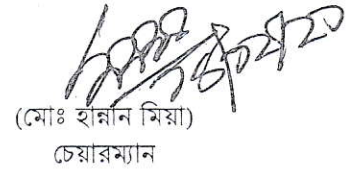 (মোঃ হান্নান মিয়া)
চেয়ারম্যান